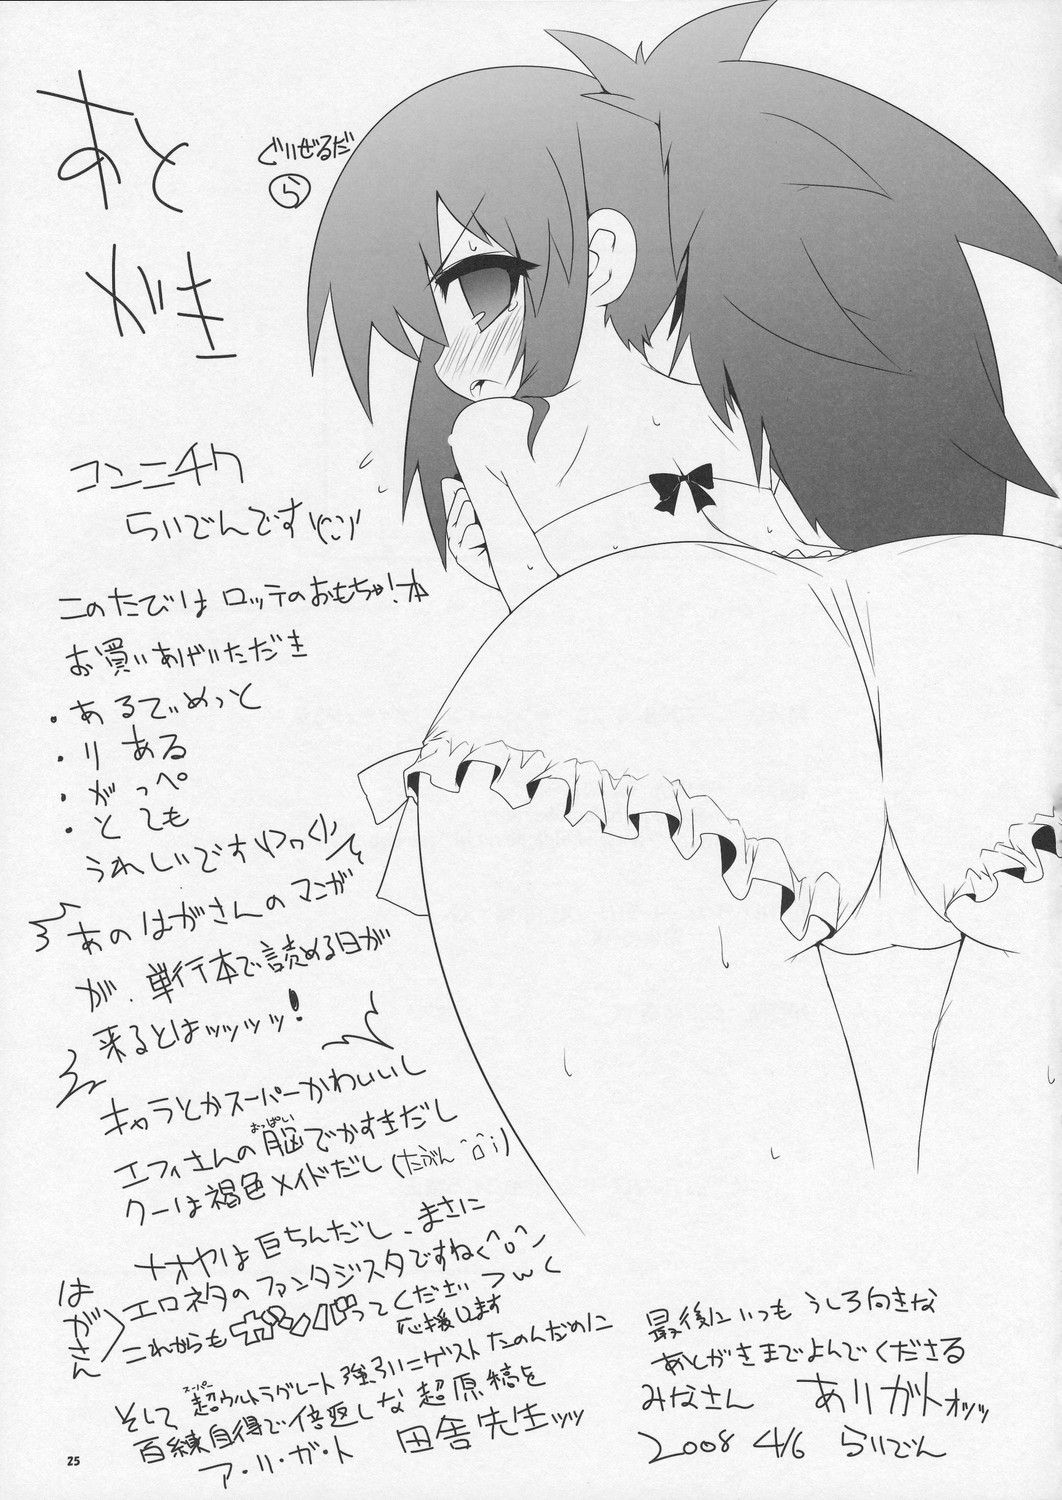 あと
がき
ら
コンニチワ
らいでんです
このたびは ロッテのおもちゃ!本
お買いあげいただき
・あるでぃめっと
・りある
・がっぺ
・とても
うれしいです
あのはがさんのマンガ
が、単行本で読める日が
来るとはッッッッ!
キャラとかスーパーかわいいし
エフィさんの脳でかすきだし
おっぱい
クーは褐色メイドだし(たぶん
ナオヤは巨ちんだし、まさに
エロネタのファンタジスタですね
はがさん
これからもガンバってください
応援します
そして超ウルトラグレート強引にゲストたのんだのに
スーパー
百練自得で倍返しな超原稿を
ア・リ・ガ・ト 田舎先生ッッ
最後に いつも うしろ向きな
あとがきまでよんでくださる
みなさん ありガトォッッ
2008 4/6 らいでん
25